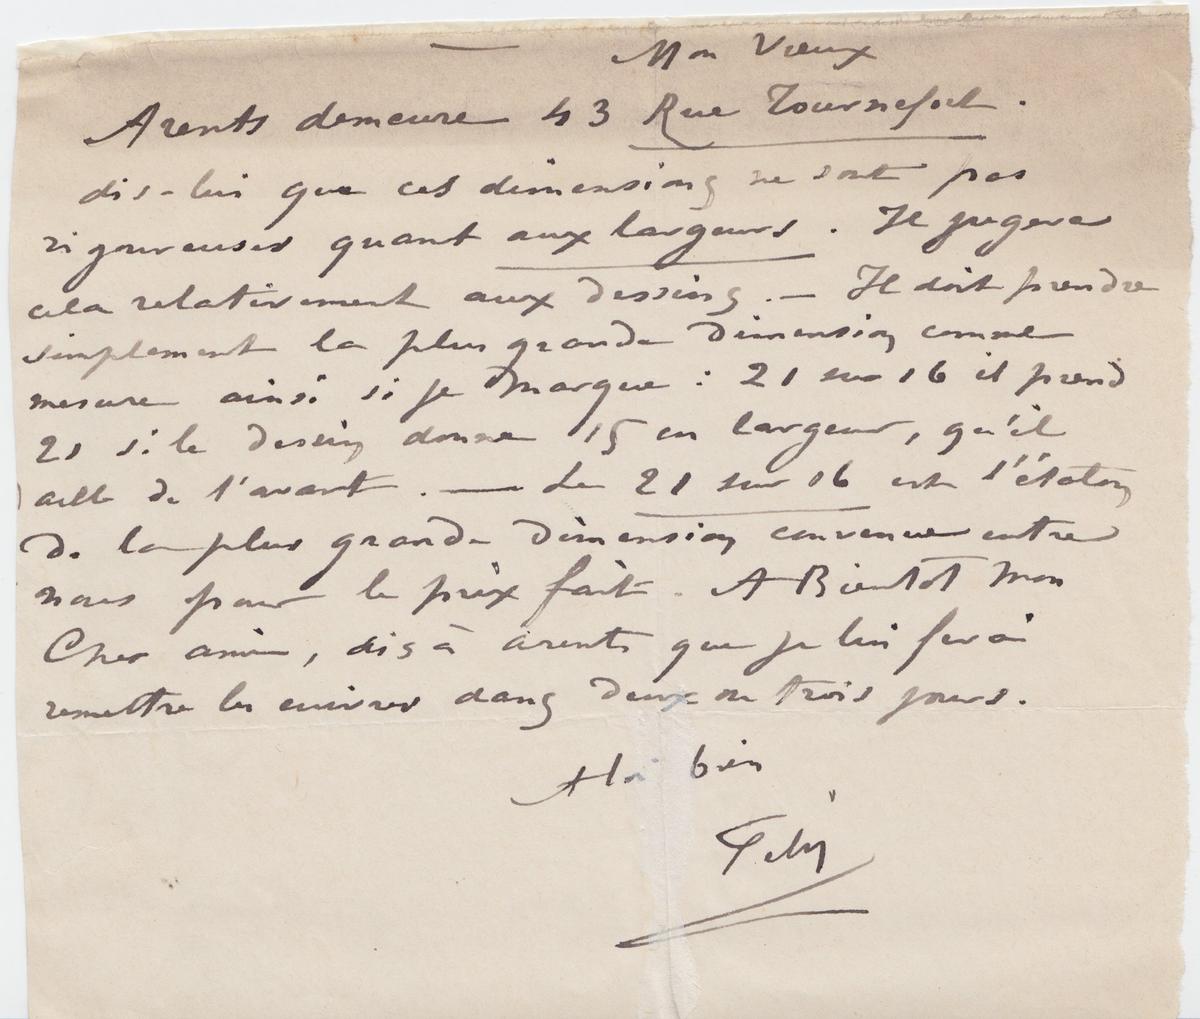 — Mon Vieux
Arents demeure 43 Rue Tournefort.
dis-lui que ces dimensions ne sont pas
rigoureuses quant aux largeurs. Il jugera
cela relativement aux dessins. — Il doit prendre
simplement la plus grande dimension comme
mesure ainsi si je marque : 21 sur 16 il prend
21 si le dessin donne 15 en largeur, qu'il
aille de l'avant. — Le 21 sur 16 est l'étalon
de la plus grande dimension convenue entre
nous pour le prix fait. A Bientot mon
Cher ami, dis à arents que je lui ferai
remettre les cuivres dans deux ou trois jours.
A toi bien